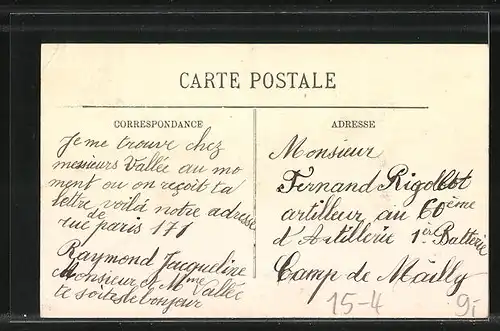 CARTE POSTALE
CORRESPONDANCE
Je me trouve chez
messieurs Vallée au mo
ment ou on reçoit ta
lettre voilà notre adresse
rue de paris 171
Raymond Jacqueline
Monsieur et Mme Vallée
te soites de bonjour
ADRESSE
Monsieur
Fernand Rigollot
artilleur au 60ème
d'Artillerie 1ère Batterie
Camp de Mailly
15-4
9,-